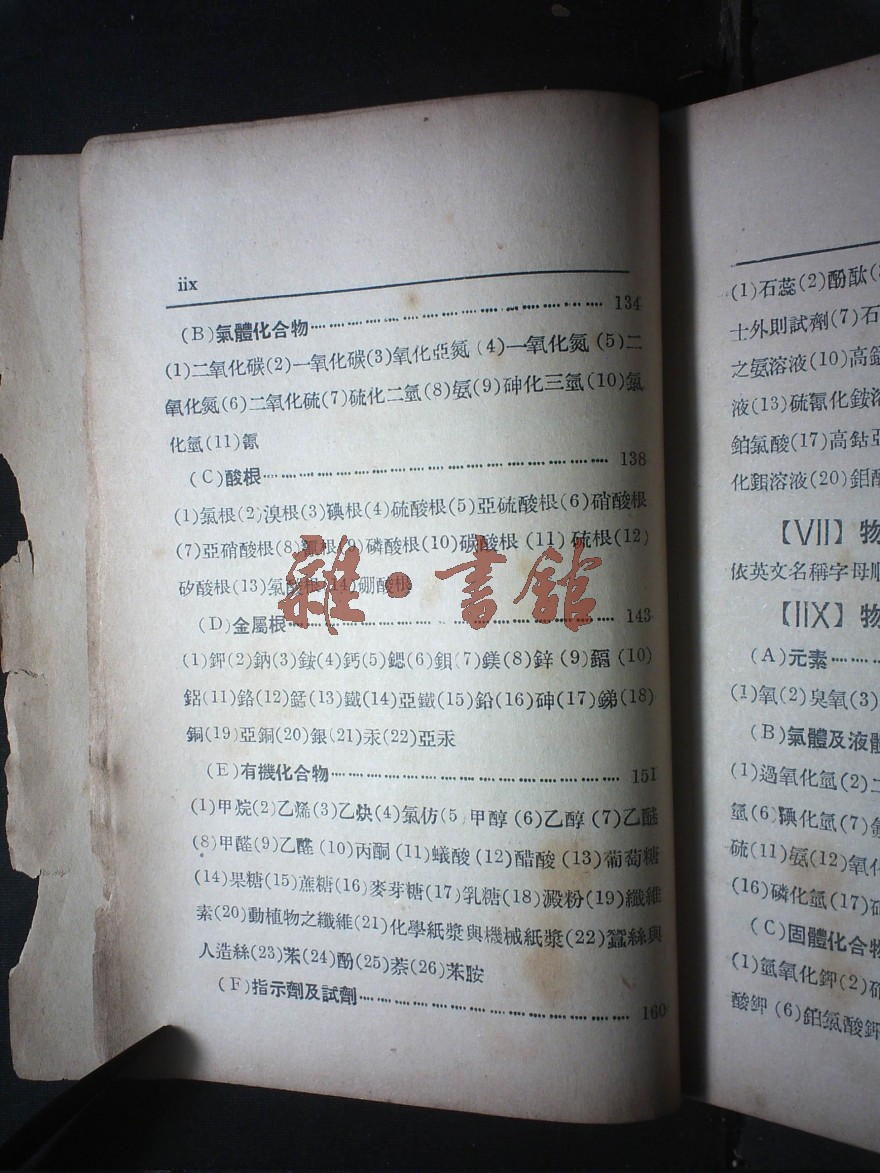 iix
(B)氣體化合物 134
(1)二氧化碳(2)一氧化碳(3)氧化亞氮(4)一氧化氮(5)二
氧化氮(6)二氧化硫(7)硫化二氫(8)氨(9)砷化三氫(10)氯
化氫(11)氰
(C)酸根 138
(1)氯根(2)溴根(3)碘根(4)硫酸根(5)亞硫酸根(6)硝酸根
(7)亞硝酸根(8)氰根(9)磷酸根(10)碳酸根(11)硫根(12)
矽酸根(13)氯酸根(14)硼酸根
雜·書館
(D)金屬根 143
(1)鉀(2)鈉(3)銨(4)鈣(5)鍶(6)鋇(7)鎂(8)鋅(9)鎘(10)
鋁(11)鉻(12)錳(13)鐵(14)亞鐵(15)鉛(16)砷(17)銻(18)
銅(19)亞銅(20)銀(21)汞(22)亞汞
(E)有機化合物 151
(1)甲烷(2)乙烯(3)乙炔(4)氯仿(5)甲醇(6)乙醇(7)乙醚
(8)甲醛(9)乙醛(10)丙酮(11)蟻酸(12)醋酸(13)葡萄糖
(14)果糖(15)蔗糖(16)麥芽糖(17)乳糖(18)澱粉(19)纖維
素(20)動植物之纖維(21)化學紙漿與機械紙漿(22)蠶絲與
人造絲(23)苯(24)酚(25)萘(26)苯胺
(F)指示劑及試劑 160
(1)石蕊(2)酚酞
士外則試劑(7)石
之氨溶液(10)高錳
液(13)硫氰化銨溶
鉑氯酸(17)高鈷亞
化鋇溶液(20)鉬酸
【VII】物
依英文名稱字母順
【IIX】物
(A)元素
(1)氧(2)臭氧(3)
(B)氣體及液體
(1)過氧化氫(2)二
氫(6)碘化氫(7)
硫(11)氨(12)氧化
(16)磷化氫(17)
(C)固體化合物
(1)氫氧化鉀(2)硝
酸鉀(6)鉑氯酸鉀